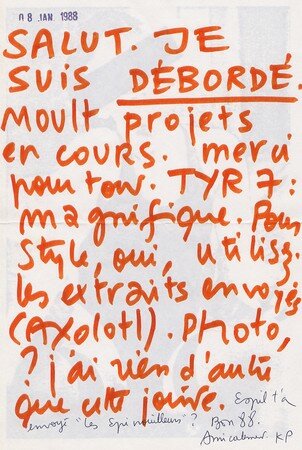 08 JAN. 1988
SALUT. JE
SUIS DÉBORDÉ.
Moult projets
en cours. merci
pour tout. TYR 7:
magnifique. Pour
style, oui, utilisez
les extraits envoyés
(Axolotl). Photo,
? j'ai rien d'autre
que cette jointe. Espil t'a
envoyé "Les ?
Bon 88.
Amicalement. KP